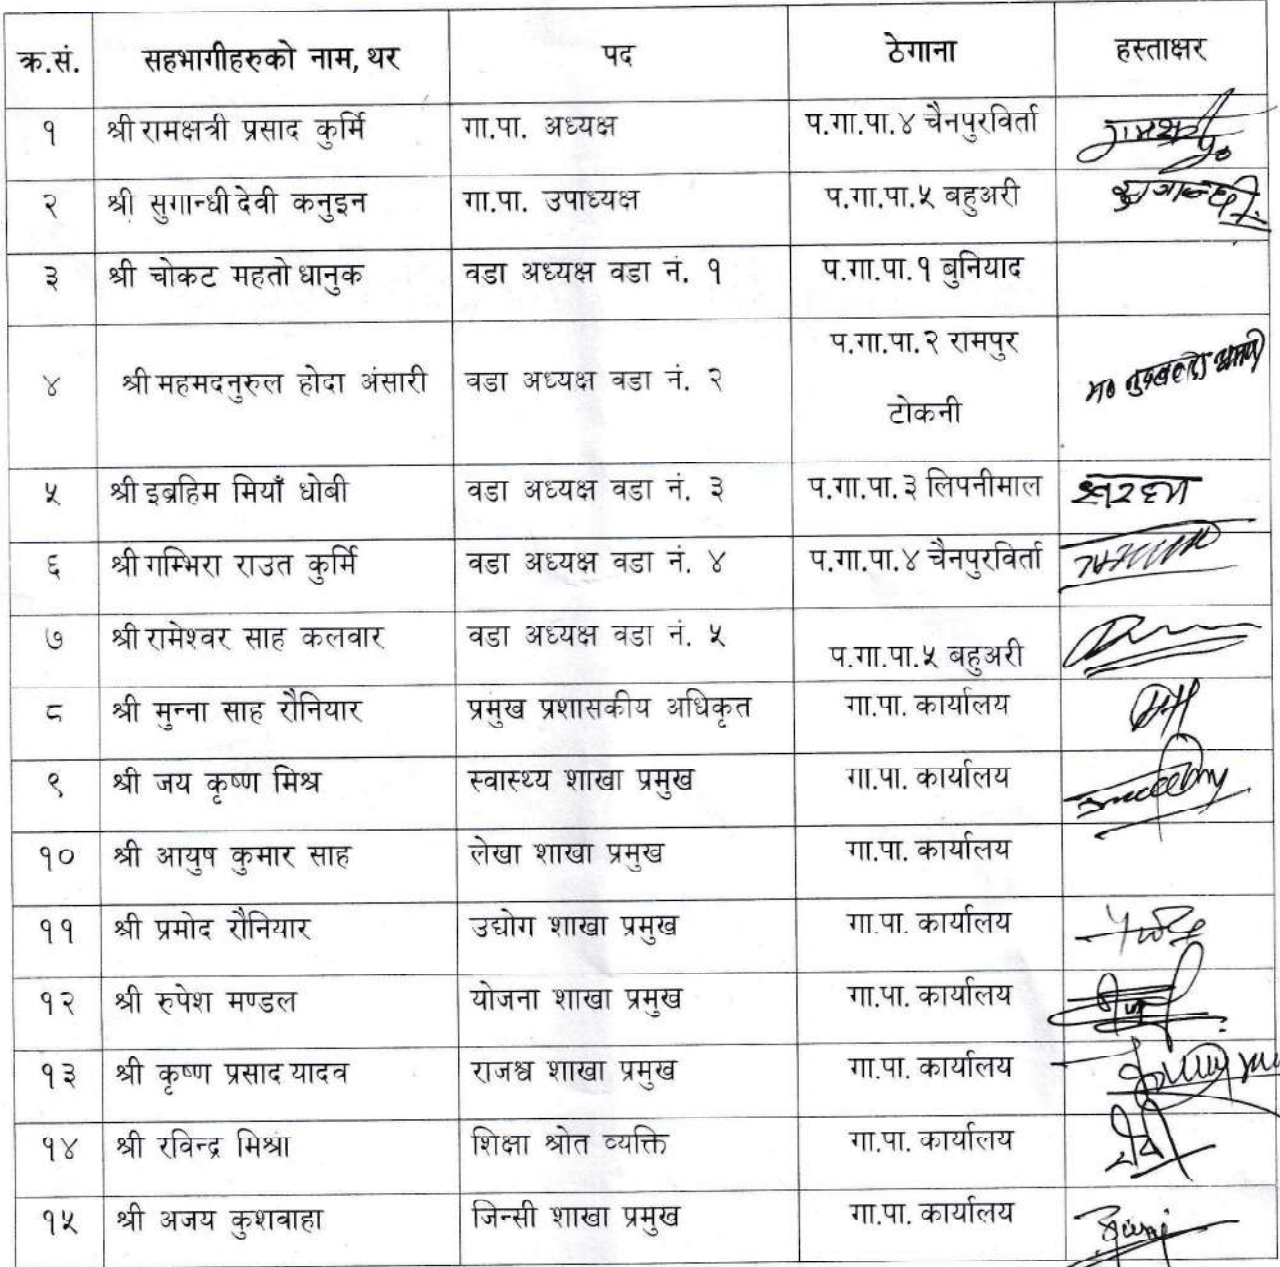 क्र.सं. सहभागीहरुको नाम, थर पद ठेगाना हस्ताक्षर
१ श्री रामक्षत्री प्रसाद कुर्मि गा.पा. अध्यक्ष प.गा.पा.४ चैनपुरविर्ता
२ श्री सुगान्धी देवी कनुइन गा.पा. उपाध्यक्ष प.गा.पा.५ बहुअरी
३ श्री चोकट महतो धानुक वडा अध्यक्ष वडा नं. १ प.गा.पा.१ बुनियाद
४ श्री महमदनुरुल होदा अंसारी वडा अध्यक्ष वडा नं. २ प.गा.पा.२ रामपुर
टोकनी
५ श्री इब्रहिम मियाँ धोबी वडा अध्यक्ष वडा नं. ३ प.गा.पा.३ लिपनीमाल
६ श्री गम्भिरा राउत कुर्मि वडा अध्यक्ष वडा नं. ४ प.गा.पा.४ चैनपुरविर्ता
७ श्री रामेश्वर साह कलवार वडा अध्यक्ष वडा नं. ५ प.गा.पा.५ बहुअरी
८ श्री मुन्ना साह रौनियार प्रमुख प्रशासकीय अधिकृत गा.पा. कार्यालय
९ श्री जय कृष्ण मिश्र स्वास्थ्य शाखा प्रमुख गा.पा. कार्यालय
१० श्री आयुष कुमार साह लेखा शाखा प्रमुख गा.पा. कार्यालय
११ श्री प्रमोद रौनियार उद्योग शाखा प्रमुख गा.पा. कार्यालय
१२ श्री रुपेश मण्डल योजना शाखा प्रमुख गा.पा. कार्यालय
१३ श्री कृष्ण प्रसाद यादव राजश्व शाखा प्रमुख गा.पा. कार्यालय
१४ श्री रविन्द्र मिश्रा शिक्षा श्रोत व्यक्ति गा.पा. कार्यालय
१५ श्री अजय कुशवाहा जिन्सी शाखा प्रमुख गा.पा. कार्यालय